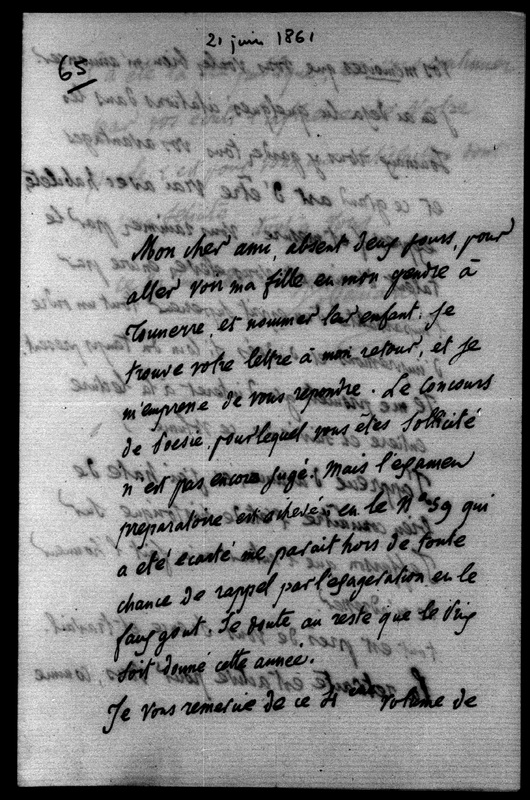 21 juin 1861
65
Mon cher ami, absent deux jours, pour
aller voir ma fille et mon gendre à
Tonnerre, et nommer leur enfant, je
trouve votre lettre à mon retour, et je
m'empresse de vous repondre. Le Concours
de Poesie, pour lequel vous êtes sollicité
n'est pas encore jugé. Mais l'examen
preparatoire est achevé; et le N° 59 qui
a été ecarté me parait hors de toute
chance de rappel par l'exageration et le
faux gout. Je doute au reste que le Prix
soit donné cette année.
Je vous remercie de ce 4 volume de